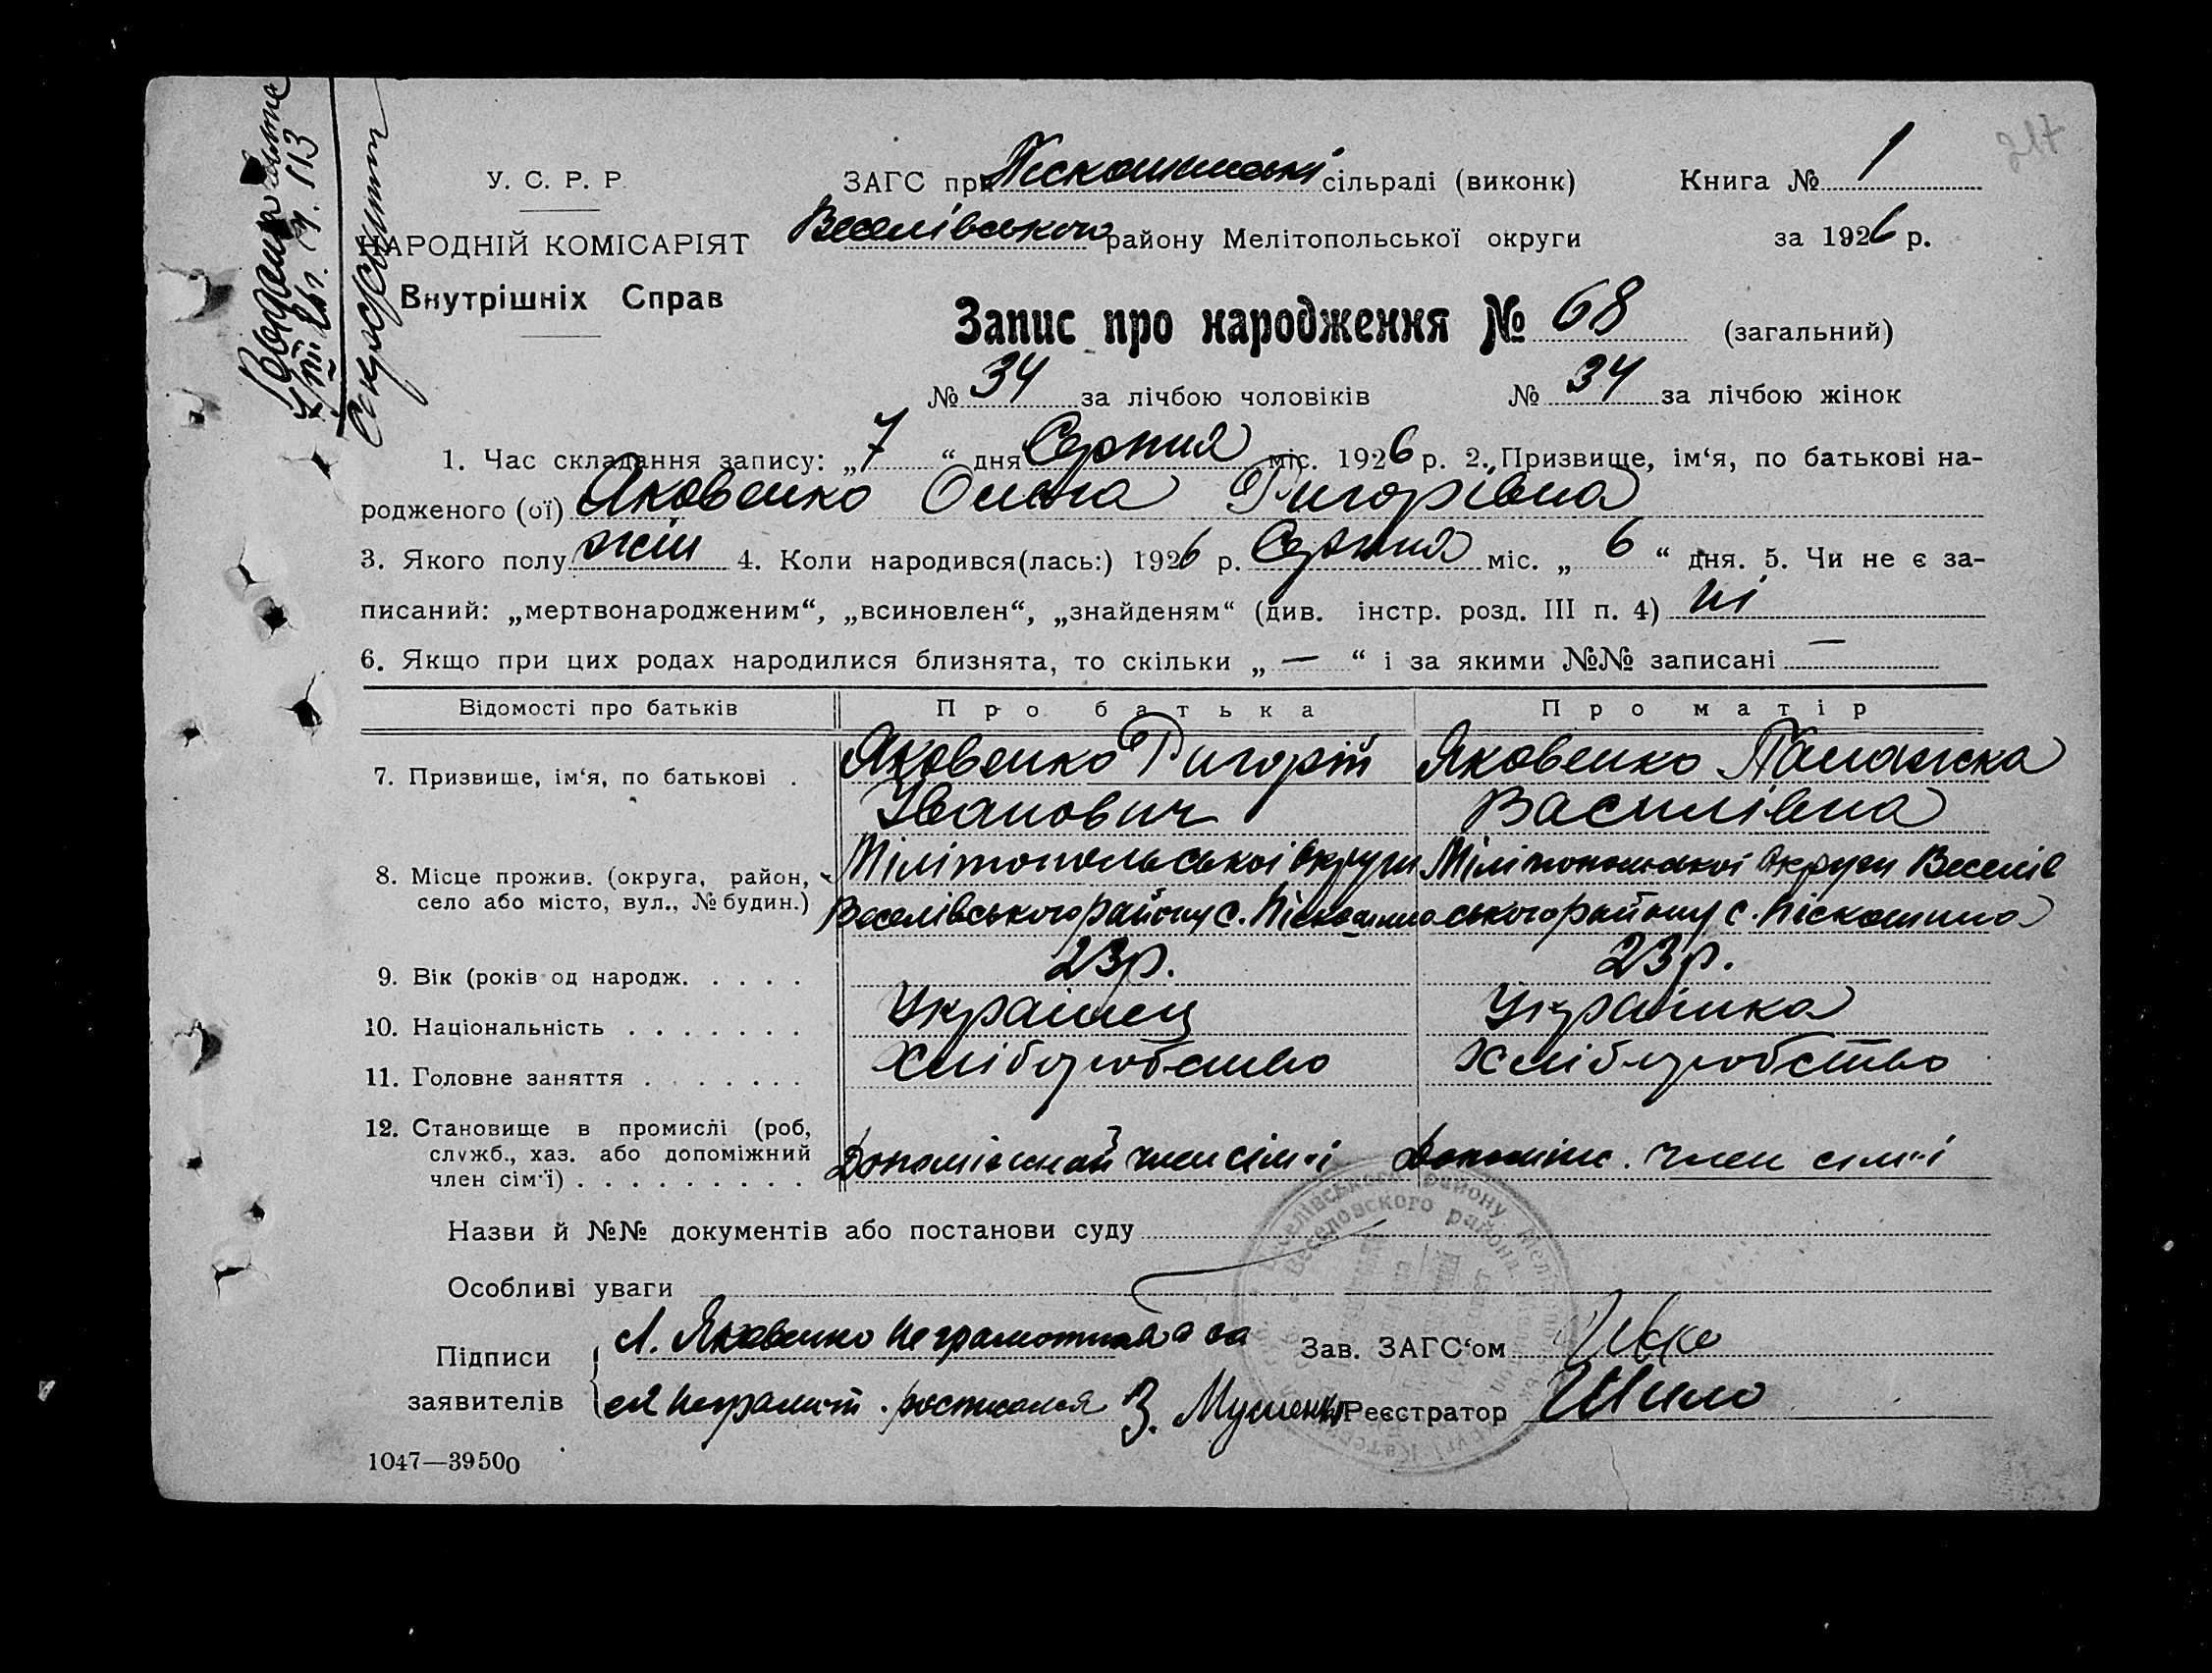 247
У. С. Р. Р.
НАРОДНІЙ КОМІСАРІЯТ
Внутрішніх Справ
ЗАГС при Піскошинські сільраді (виконк) Книга № 1
Веселівського району Мелітопольської округи за 1926 р.
Запис про народження № 68 (загальний)
№ 34 за лічбою чоловіків № 34 за лічбою жінок
1. Час складання запису: „7“ дня Серпня міс. 1926 р. 2. Призвище, ім‘я, по батькові на-
родженого (ої) Яковенко Ольга Григорівна
3. Якого полу жін 4. Коли народився(лась:) 1926 р. Серпня міс. „6“ дня. 5. Чи не є за-
писаний: „мертвонародженим“, „всиновлен“, „знайденям“ (див. інстр. розд. III п. 4) ні
6. Якщо при цих родах народилися близнята, то скільки „—“ і за якими №№ записані —
Відомості про батьків Про батька Про матір
7. Призвище, ім‘я, по батькові . Яковенко Григорій Яковенко Палажка
Іванович Василівна
8. Місце прожив. (округа, район, Мілітопольської округи Мілітопольської округи Веселів
село або місто, вул., № будин.) Веселівського району с. Піскошино ського району с. Піскошино
9. Вік (років од народж. . . . . 23 р. 23 р.
10. Національність . . . . . . . Українец Українка
11. Головне заняття . . . . . . . Хліборобство Хліборобство
12. Становище в промислі (роб,
служб., хаз. або допоміжний Допоміжний член сім'ї Допоміж. член сім'ї
член сім‘ї) . . . . . . . . .
Назви й №№ документів або постанови суду
Особливі уваги
Підписи Л. Яковенко неграмотная а за Зав. ЗАГС‘ом
заявителів ея неграмот. росписался З. Мусиенко Реєстратор Шило
1047—39500